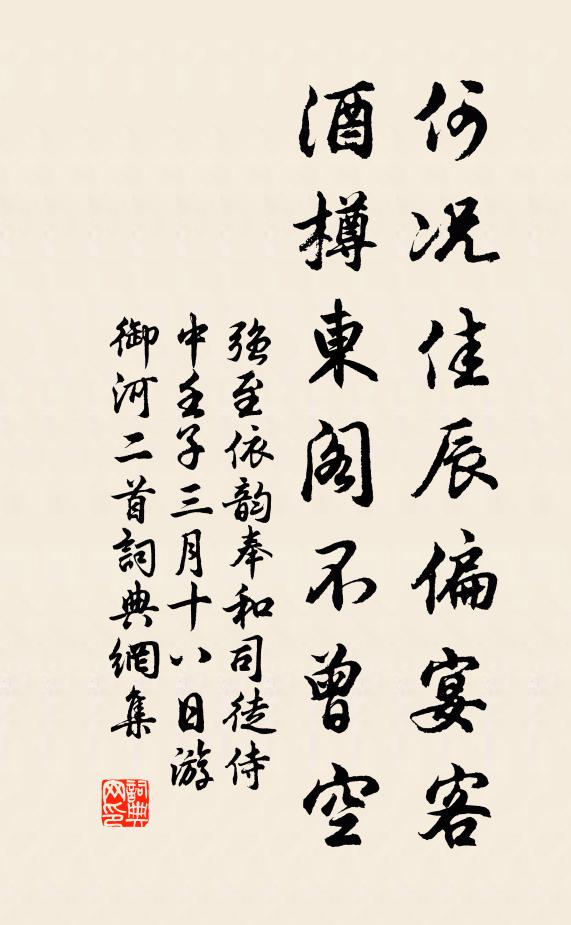 何况佳辰偏宴客
酒樽東阁不曾空
強至依韵奉和司徒侍
中壬子三月十八日游
御河二首詞典網集
詞典网印